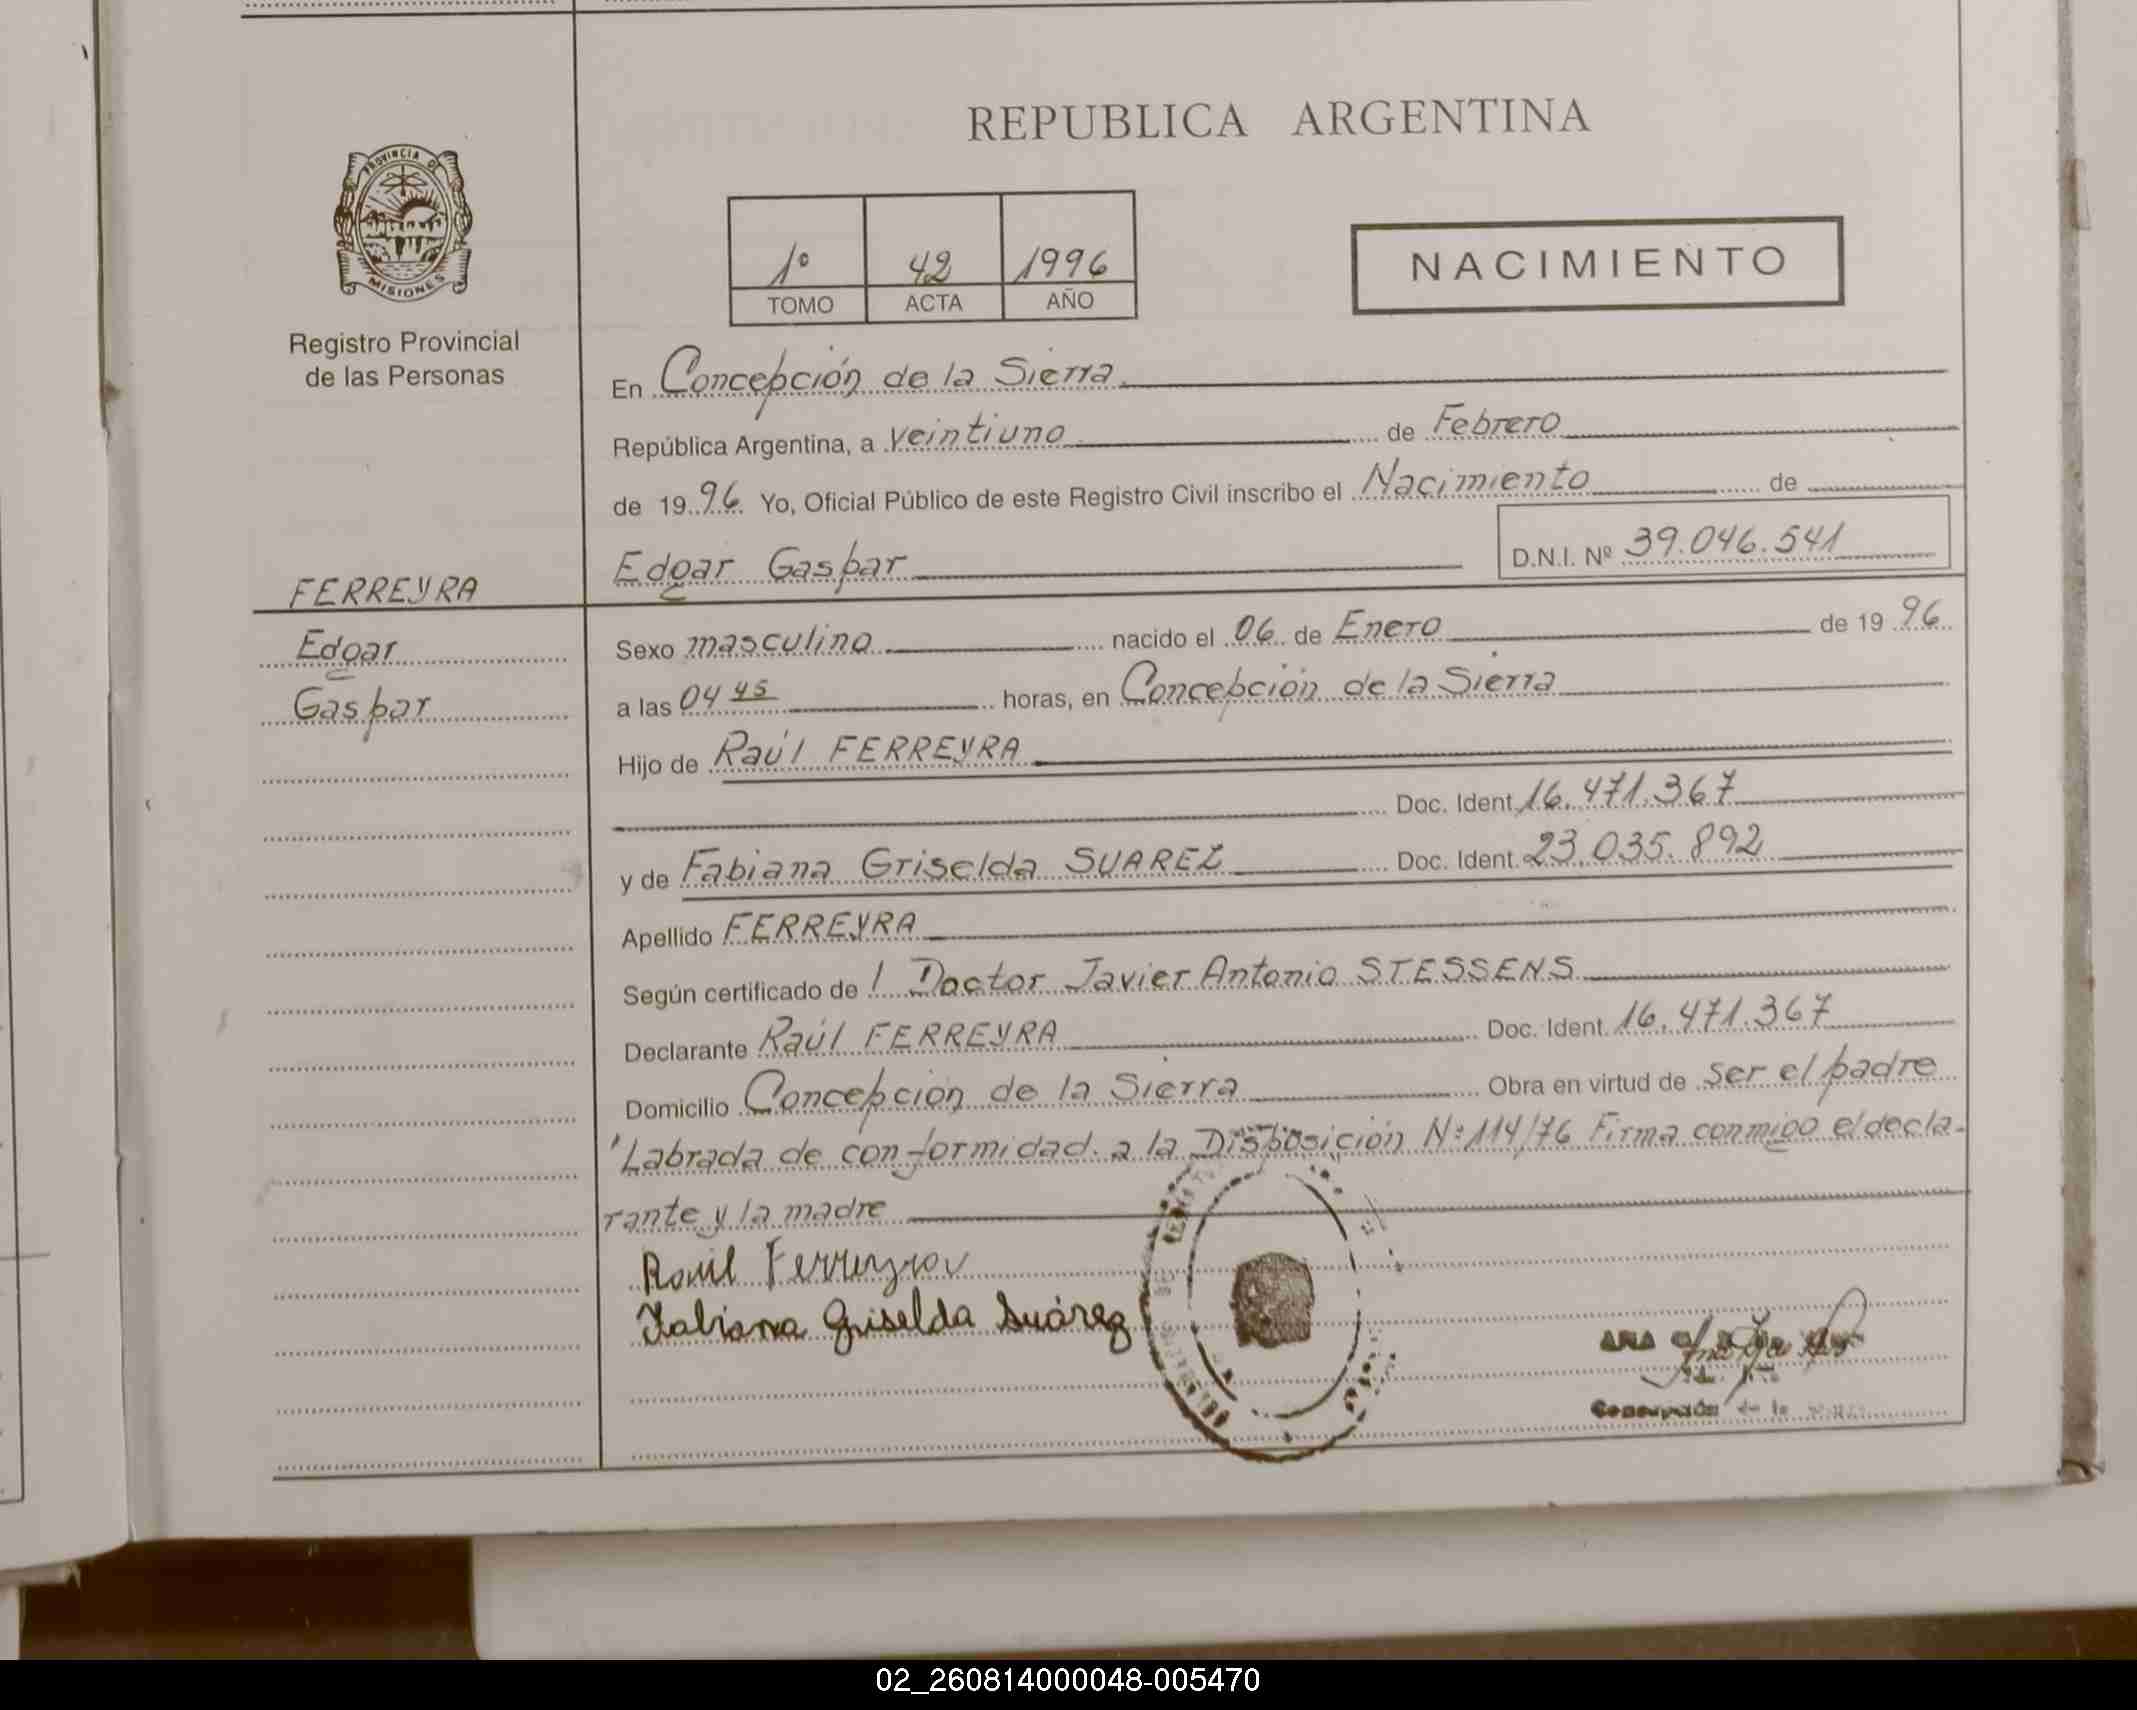 REPUBLICA ARGENTINA
PROVINCIA DE MISIONES
Registro Provincial
de las Personas
1º 42 1996
TOMO ACTA AÑO
NACIMIENTO
En Concepción de la Sierra
República Argentina, a veintiuno de Febrero
de 1996 Yo, Oficial Público de este Registro Civil inscribo el Nacimiento de
Edgar Gaspar D.N.I. Nº 39.046.541
FERREYRA
Edgar
Gaspar
Sexo masculino nacido el 06 de Enero de 1996
a las 04 45 horas, en Concepción de la Sierra
Hijo de Raúl FERREYRA
Doc. Ident. 16.471.367
y de Fabiana Griselda SUAREZ Doc. Ident. 23.035.892
Apellido FERREYRA
Según certificado de l Doctor Javier Antonio STESSENS
Declarante Raúl FERREYRA Doc. Ident. 16.471.367
Domicilio Concepción de la Sierra Obra en virtud de ser el padre
Labrada de conformidad a la Disposición Nº 114/76 Firma conmigo el decla-
rante y la madre
Raúl Ferreyra
Fabiana Griselda Suárez
ANA
Concepción de la
02_260814000048-005470